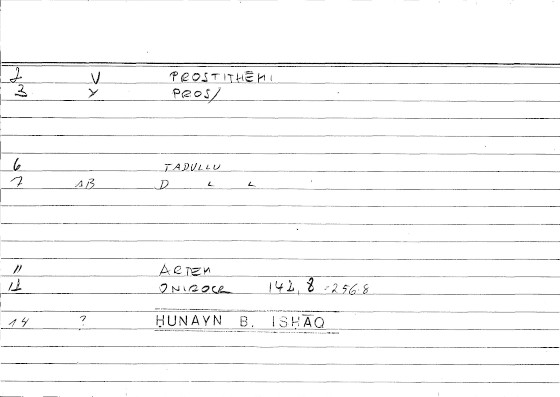 2 V PROSTITHĒMI
3 Y PROS/
6 TADULLU
7 AB D L L
11 ARTEM
12 ONIROCR 142,8 = 256.8
14 ? HUNAYN B. ISḤĀQ